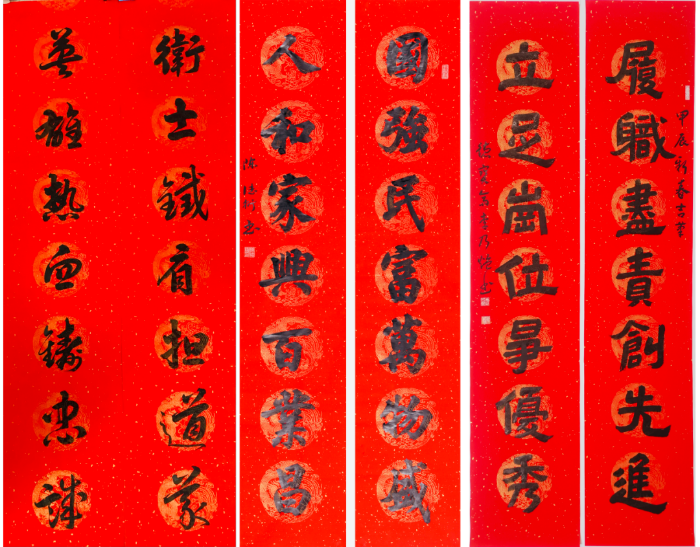 履職盡責創先進
甲辰新春吉
立足崗位爭優秀
國強民富萬物盛
人和家興百業昌
衛士鐵肩担道義
英雄热血鑄忠誠